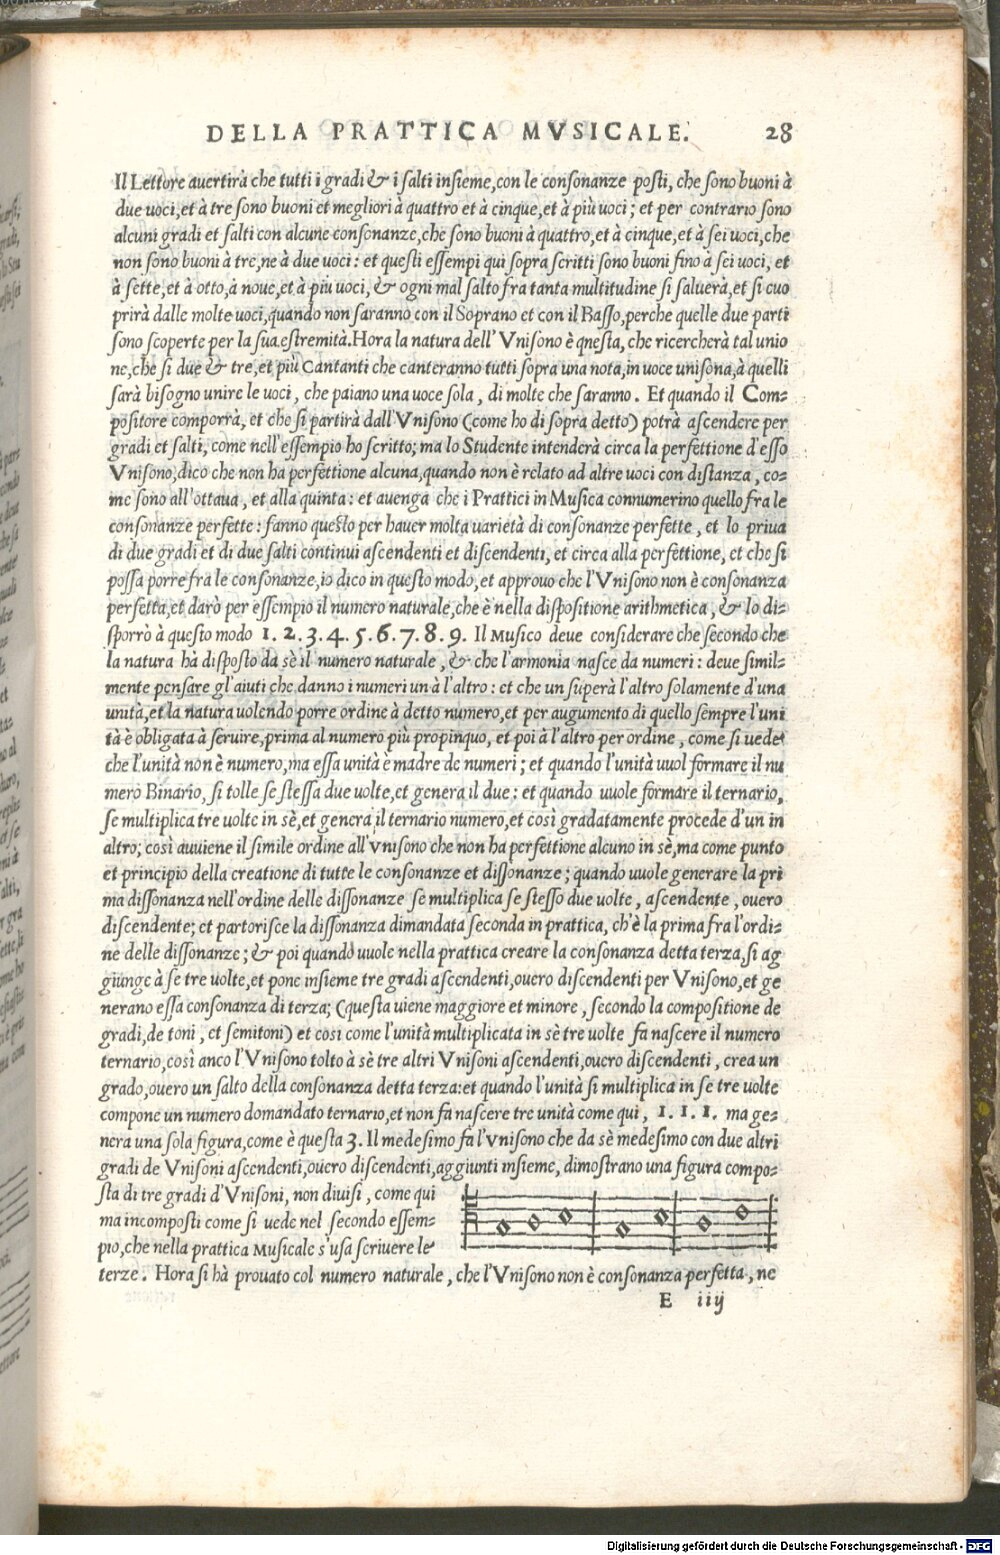 DELLA PRATTICA MVSICALE. 28
Il Lettore auertirà che tutti i gradi & i salti insieme, con le consonanze posti, che sono buoni à
due uoci, et à tre sono buoni et megliori à quattro et à cinque, et à più uoci; et per contrario sono
alcuni gradi et salti con alcune consonanze, che sono buoni à quattro, et à cinque, et à sei uoci, che
non sono buoni à tre, ne à due uoci: et questi essempi qui sopra scritti sono buoni fino à sei uoci, et
à sette, et à otto, à noue, et à più uoci, & ogni mal salto fra tanta multitudine si saluerà, et si cuo
prirà dalle molte uoci, quando non saranno con il Soprano et con il Basso, perche quelle due parti
sono scoperte per la sua estremità. Hora la natura dell'Vnisono è qnesta, che ricercherà tal unio
ne, che si due & tre, et più Cantanti che canteranno tutti sopra una nota, in uoce unisona, à quelli
sarà bisogno unire le uoci, che paiano una uoce sola, di molte che saranno. Et quando il Com=
positore comporrà, et che si partirà dall'Vnisono (come ho di sopra detto) potrà ascendere per
gradi et salti, come nell'essempio ho scritto; ma lo Studente intenderà circa la perfettione d'esso
Vnisono, dico che non ha perfettione alcuna, quando non è relato ad altre uoci con distanza, co=
me sono all'ottaua, et alla quinta: et auenga che i Prattici in Musica connumerino quello fra le
consonanze perfette: fanno questo per hauer molta uarietà di consonanze perfette, et lo priua
di due gradi et di due salti continui ascendenti et discendenti, et circa alla perfettione, et che si
possa porre fra le consonanze, io dico in questo modo, et approuo che l'Vnisono non è consonanza
perfetta, et darò per essempio il numero naturale, che è nella dispositione arithmetica, & lo di=
sporrò à questo modo 1. 2. 3. 4. 5. 6. 7. 8. 9. Il Musico deue considerare che secondo che
la natura hà disposto da sè il numero naturale, & che l'armonia nasce da numeri: deue simil=
mente pensare gl'aiuti che danno i numeri un à l'altro: et che un superà l'altro solamente d'una
unità, et la natura uolendo porre ordine à detto numero, et per augumento di quello sempre l'uni
tà è obligata à seruire, prima al numero più propinquo, et poi à l'altro per ordine, come si uede
che l'unità non è numero, ma essa unità è madre de numeri; et quando l'unità uuol formare il nu
mero Binario, si tolle se stessa due uolte, et genera il due: et quando uuole formare il ternario,
se multiplica tre uolte in sè, et genera il ternario numero, et così gradatamente procede d'un in
altro; così auuiene il simile ordine all'Vnisono che non ha perfettione alcuno in sè, ma come punto
et principio della creatione di tutte le consonanze et dissonanze; quando uuole generare la pri
ma dissonanza nell'ordine delle dissonanze se multiplica se stesso due uolte, ascendente, ouero
discendente; et partorisce la dissonanza dimandata seconda in prattica, ch'è la prima fra l'ordi=
ne delle dissonanze; & poi quando uuole nella prattica creare la consonanza detta terza, si ag
giunge à se tre uolte, et pone insieme tre gradi ascendenti, ouero discendenti per Vnisono, et ge
nerano essa consonanza di terza; (questa uiene maggiore et minore, secondo la compositione de
gradi, de toni, et semitoni) et cosi come l'unità multiplicata in sè tre uolte fa nascere il numero
ternario, così anco l'Vnisono tolto à sè tre altri Vnisoni ascendenti, ouero discendenti, crea un
grado, ouero un salto della consonanza detta terza: et quando l'unità si multiplica in se tre uolte
compone un numero domandato ternario, et non fa nascere tre unità come qui, 1. 1. 1. ma ge=
nera una sola figura, come è questa 3. Il medesimo fa l'Vnisono che da sè medesimo con due altri
gradi de Vnisoni ascendenti, ouero discendenti, aggiunti insieme, dimostrano una figura compo=
sta di tre gradi d'Vnisoni, non diuisi, come qui
ma incomposti come si uede nel secondo essem=
pio, che nella prattica Musicale s'usa scriuere le
terze. Hora si hà prouato col numero naturale, che l'Vnisono non è consonanza perfetta, ne
E iij
Digitalisierung gefördert durch die Deutsche Forschungsgemeinschaft - DFG